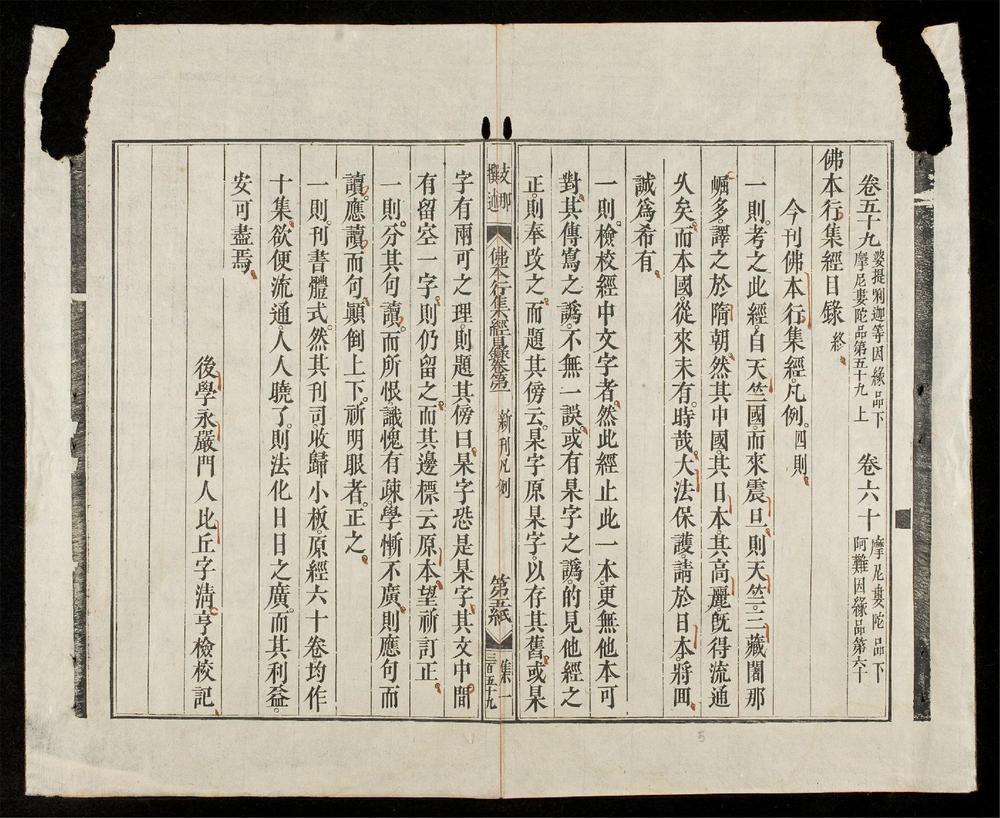 卷五十九 婆提唎迦等因緣品下 摩尼婁陀品第五十九上 卷六十 摩尼婁陀品下 阿難因緣品第六十
佛本行集經目錄 終
今刊佛本行集經凡例。四則。
一則。考之此經。自天竺國。而來震旦。則天竺。三藏闍那
崛多。譯之於隋朝。然其中國。其日本。其高麗。旣得流通
久矣。而本國。從來未有。時哉。大法保護。請於日本。將回。
誠爲希有。
一則。檢校經中文字者。然此經止此一本。更無他本可
對。其傳寫之譌。不無一誤。或有杲字之譌。的見他經之
正。則奉改之。而題其傍云。杲字原杲字。以存其舊。或杲
支那 撰述 佛本行集經目錄卷第一 新刊凡例 第五紙 集一 三百五十九
字有兩可之理。則題其傍曰。杲字恐是杲字。其文中間
有留空一字。則仍留之。而其邊標云原本。望祈訂正。
一則。分其句讀。而所恨。識愧有疎。學慚不廣。則應句而
讀。應讀而句。顚倒上下。祈明眼者。正之。
一則。刊書體式。然其刊司。收歸小板。原經六十卷均作
十集。欲便流通。人人曉了。則法化日日之廣。而其利益。
安可盡焉。
後學永嚴門人比丘字清亨檢校記
5